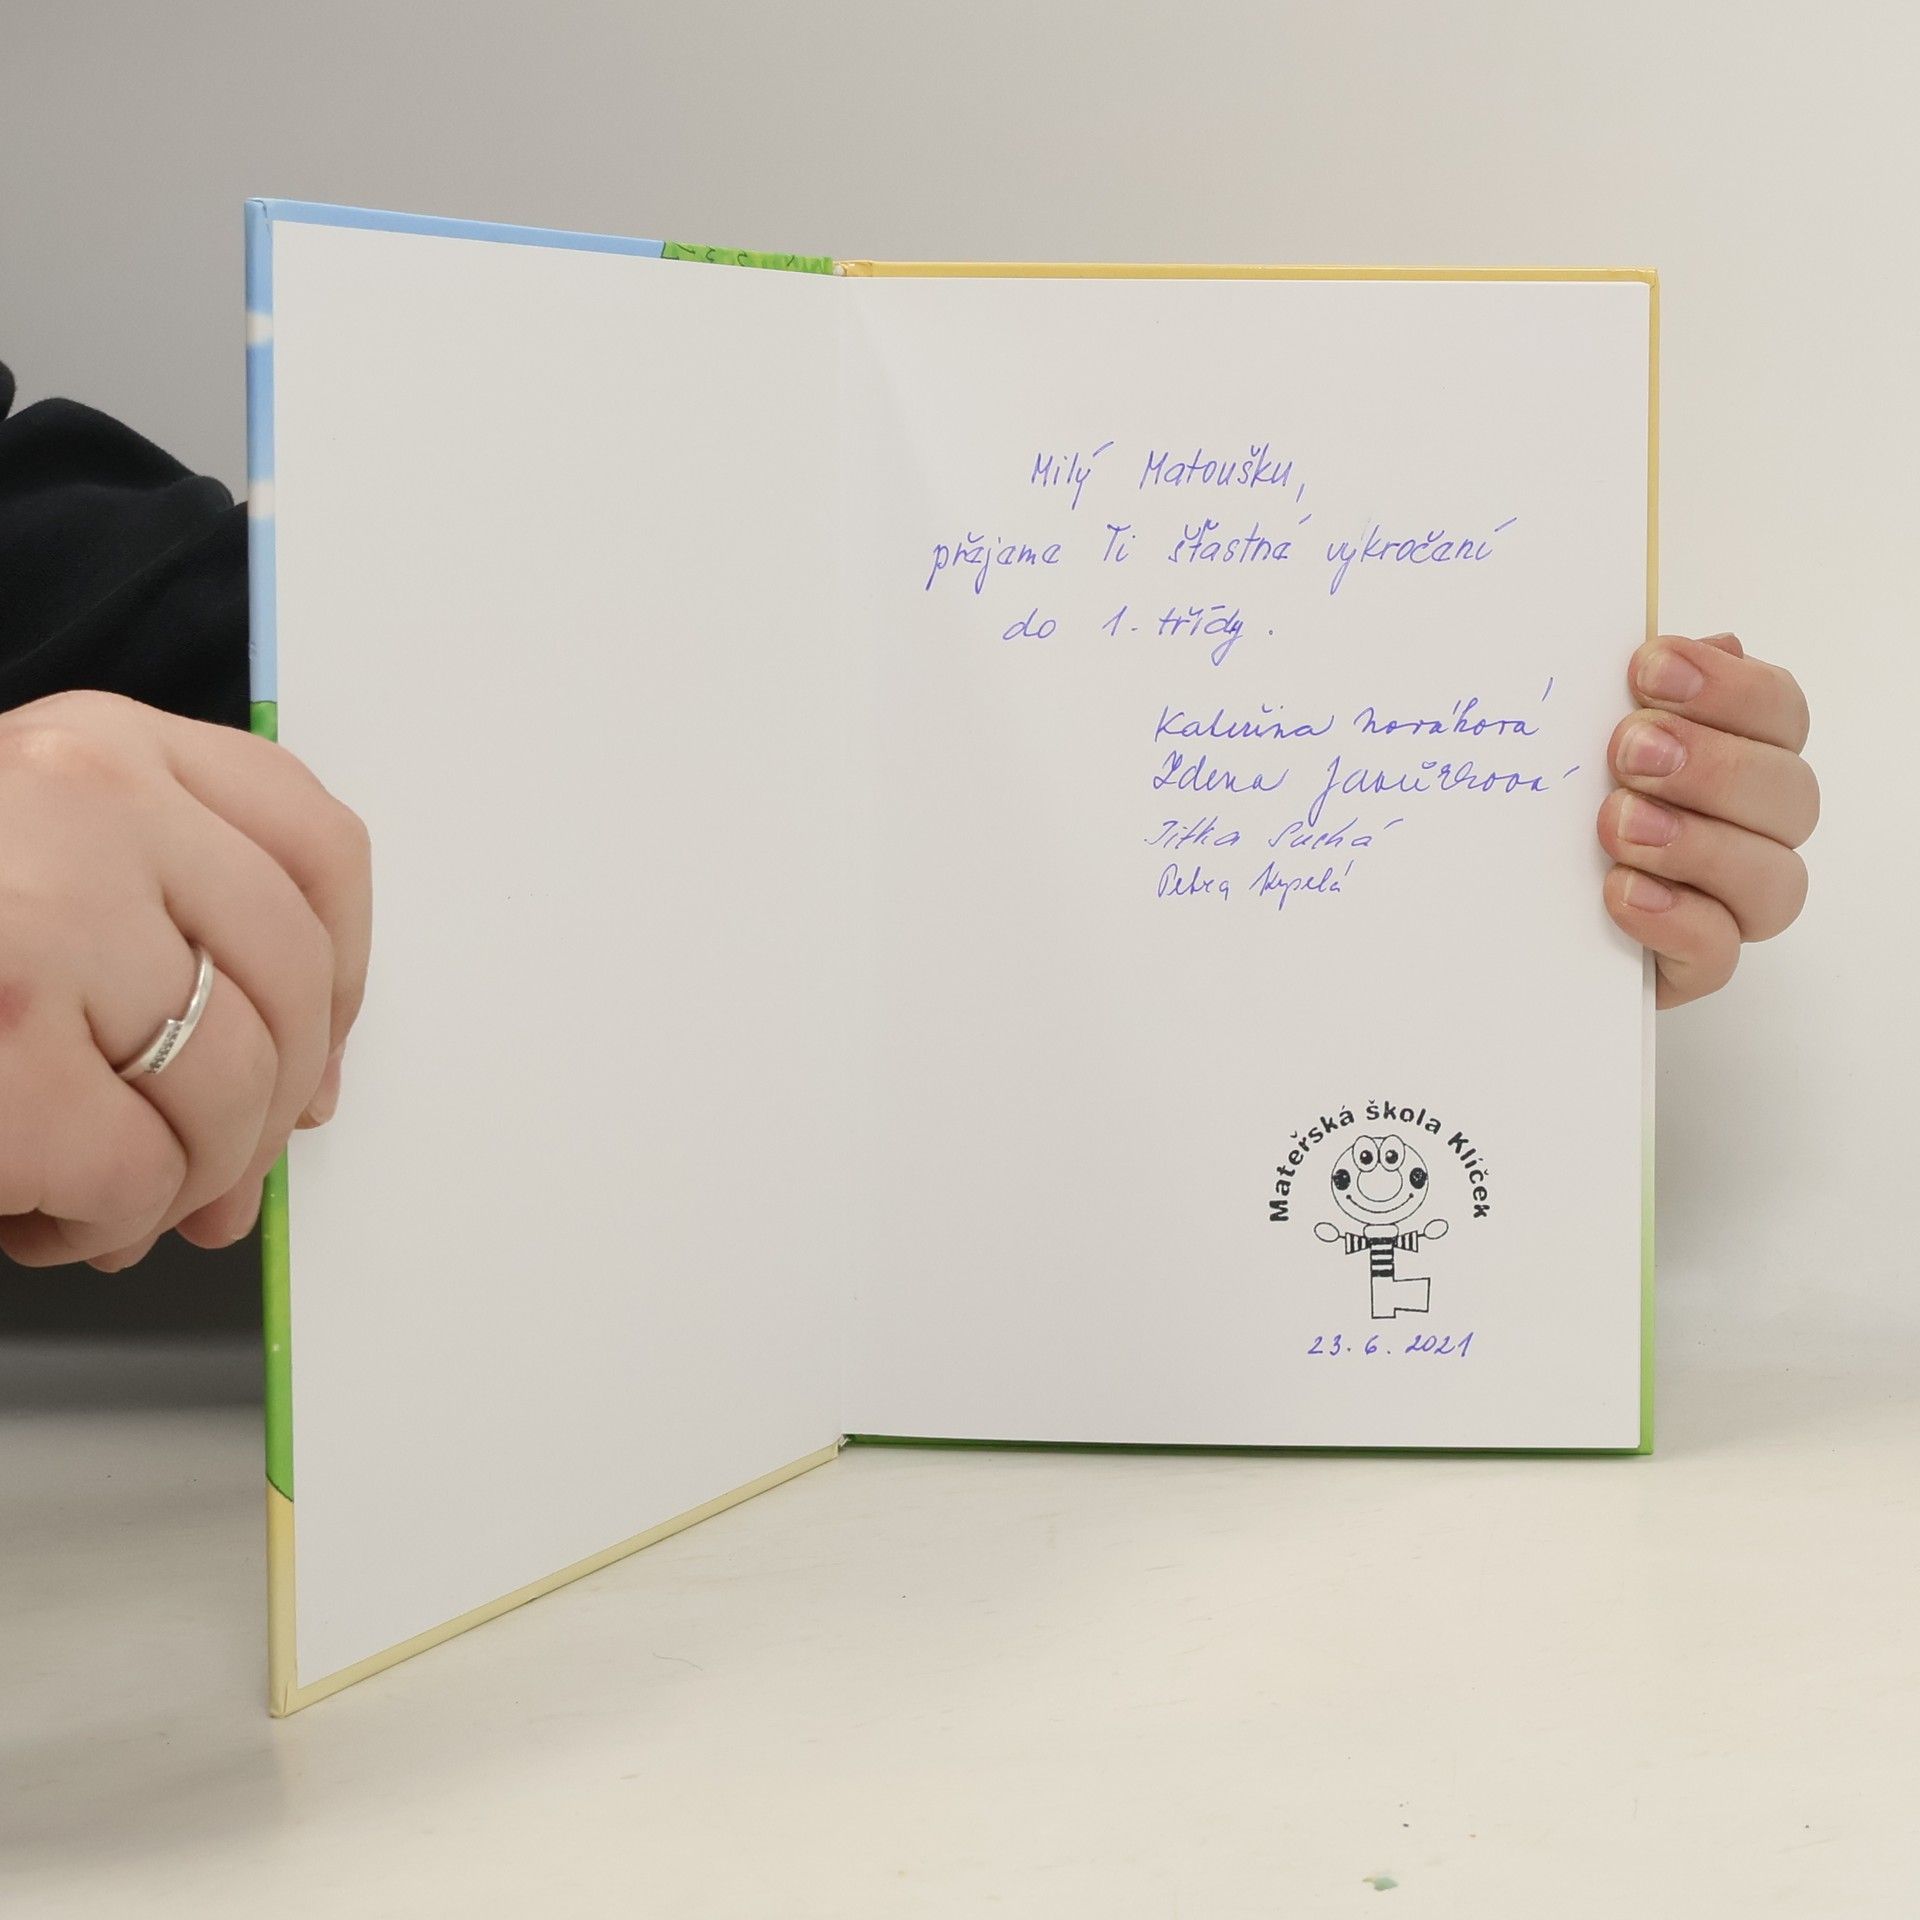 Milý Matoušku,
přejeme Ti šťastné vykročení
do 1. třídy.
Kateřina Nováková
Zdena Janůrková
Jitka Suchá
Petra Kypelá
Mateřská škola Klíček
23. 6. 2021